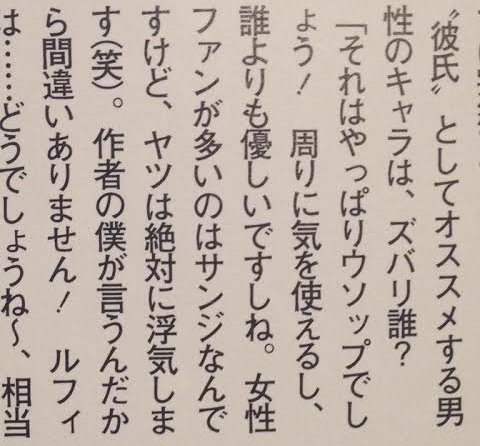 〝彼氏〟としてオススメする男
性のキャラは、ズバリ誰？
「それはやっぱりウソップでし
ょう！　周りに気を使えるし、
誰よりも優しいですしね。女性
ファンが多いのはサンジなんで
すけど、ヤツは絶対に浮気しま
す(笑)。作者の僕が言うんだか
ら間違いありません！　ルフィ
は……どうでしょうね〜、相当